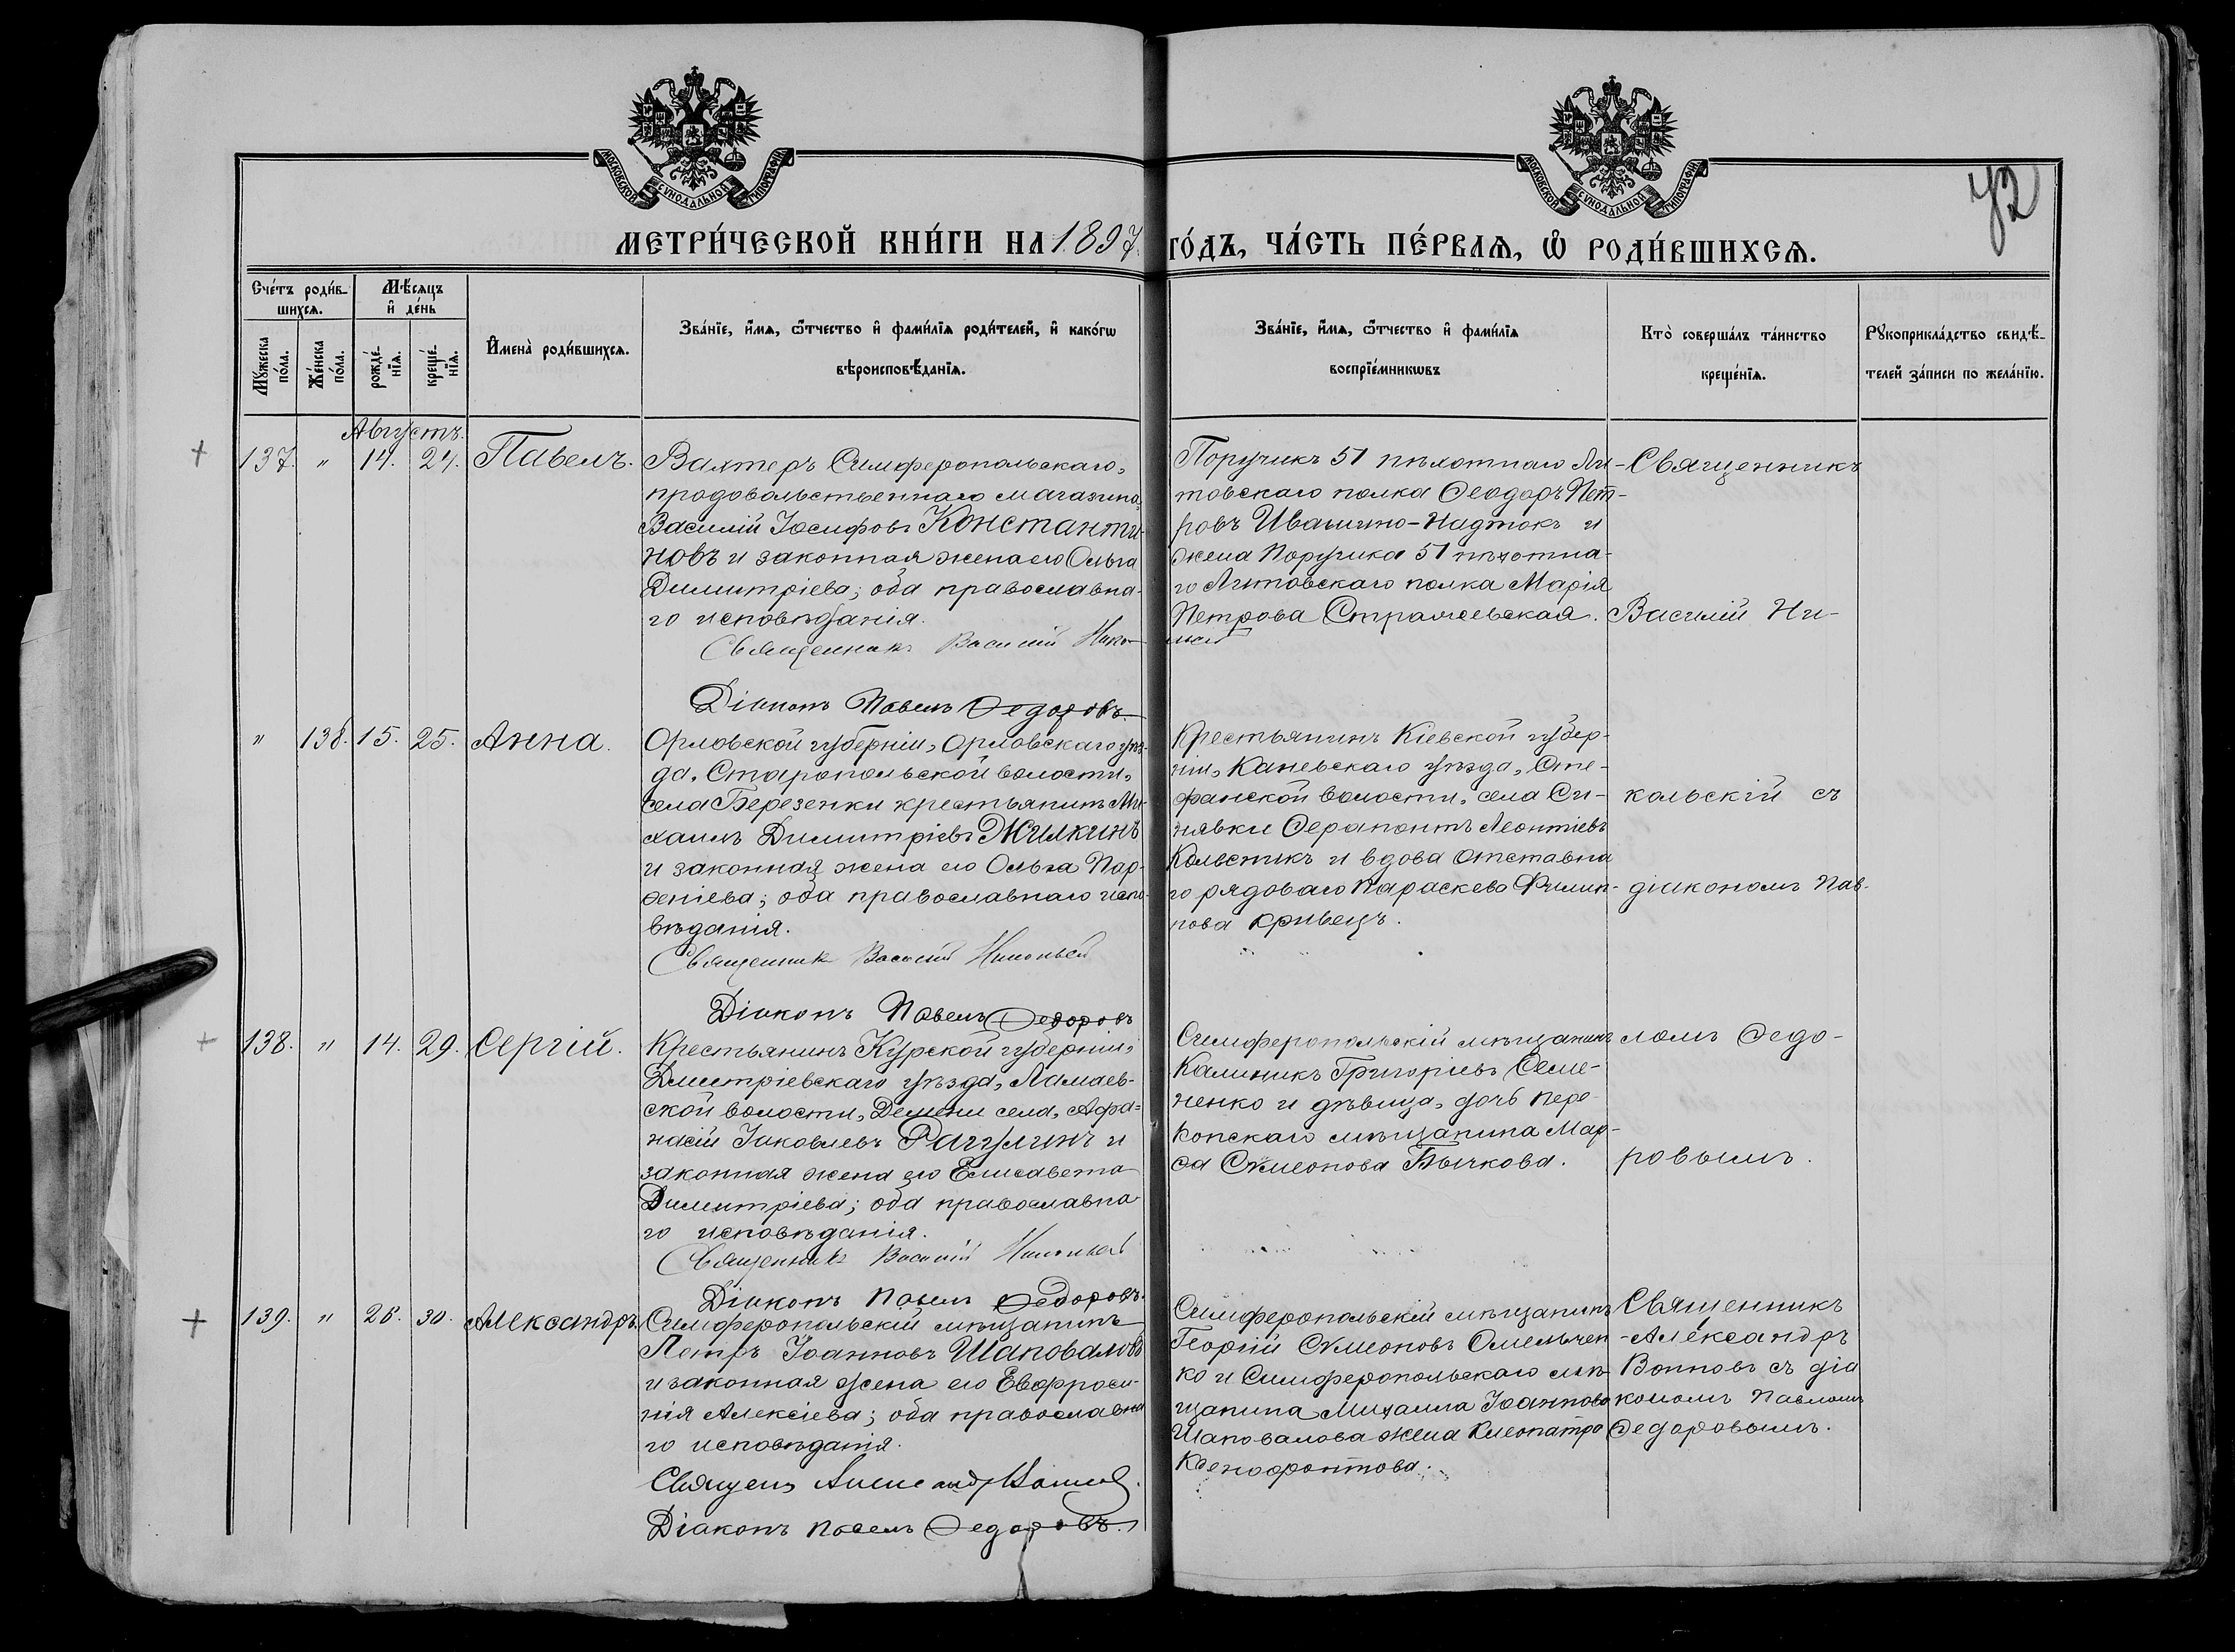 МОСКОВСКОЙ СѴНОДАЛЬНОЙ ТИПОГРАФІИ
МОСКОВСКОЙ СѴНОДАЛЬНОЙ ТИПОГРАФІИ
72
МЕТРИ́ЧЕСКОЙ КНИ́ГИ НА 1897 ГО́ДЪ, ЧА́СТЬ ПЕ́РВАѦ, Ѡ҆ РОДИ́ВШИХСѦ.
Сче́тъ роди́в-
шихсѧ.
Мꙋ́жеска по́ла.
Же́нска по́ла.
Мѣ́сѧцъ
и҆ де́нь
рожде́-
нїѧ.
креще́-
нїѧ.
И҆мена̀ роди́вшихсѧ.
Зва́нїе, и҆́мѧ, ѻ҆́тчество и҆ фами́лїѧ роди́телей, и҆ како́гѡ
вѣроисповѣ́данїѧ.
Зва́нїе, и҆́мѧ, ѻ҆́тчество и҆ фами́лїѧ
воспрїе́мникѡвъ
Кто̀ соверша́лъ та́инство
креще́нїѧ.
Рꙋкоприкла́дство свидѣ́-
телей за́писи по жела́нїю.
Августъ.
137. " 14. 24. Павелъ.
Вахтеръ Симферопольскаго
продовольственнаго магазина,
Василій Іосифовъ Константи-
новъ и законная жена его Ольга
Димитріева; оба православна-
го исповѣданія.
Священникъ Василій Никольскій
Діаконъ Павелъ Федоровъ.
Поручикъ 51 пѣхотнаго Ли-
товскаго полка Ѳеодоръ Пет-
ровъ Ивашино-Надтокъ и
жена Поручика 51 пѣхотна-
го Литовскаго полка Марія
Петрова Стражевская.
Священникъ
Василій Ни-
" 138. 15. 25. Анна.
Орловской губерніи, Орловскаго уѣз-
да, Старопольской волости,
села Березенки крестьянинъ Ми-
хаилъ Димитріевъ Жилкинъ
и законная жена его Ольга Пар-
ѳеніева; оба православнаго испо-
вѣданія.
Священникъ Василій Никольскій
Діаконъ Павелъ Федоровъ
Крестьянинъ Кіевской губер-
ніи, Каневскаго уѣзда, Сте-
фанской волости, села Си-
нявки Ѳерапонтъ Леонтіевъ
Колесникъ и вдова отставна
го рядоваго Параскева Филип-
пова Кривецъ.
кольскій съ
діакономъ Пав-
138. " 14. 29. Сергій.
Крестьянинъ Курской губерніи,
Дмитріевскаго уѣзда,
ской волости, села, Афа=
насій Іаковлевъ Рагулинъ и
законная жена его Елисавета
Димитріева; оба православна
го исповѣданія.
Священникъ Василій Никольскій
Діаконъ Павелъ Федоровъ.
Симферопольскій мѣщанинъ
Калиникъ Григоріевъ Семе-
ненко и дѣвица, дочь пере-
копскаго мѣщанина Мар-
ѳа Сѵмеонова Бычкова.
ломъ Ѳедо-
ровымъ.
139. " 26. 30. Александръ
Симферопольскій мѣщанинъ
Петръ Іоанновъ Шаповаловъ
и законная жена его Евфроси-
нія Алексіева; оба православна
го исповѣданія.
Діаконъ Павелъ Федоровъ.
Симферопольскій мѣщанинъ
Георгій Сѵмеоновъ Омельчен
ко и Симферопольскаго мѣ-
щанина Михаила Іоаннова
Шаповалова жена Клеопатра
Ксенофонтова.
Священникъ
Александръ
съ діа
кономъ Павломъ
Ѳедоровымъ.